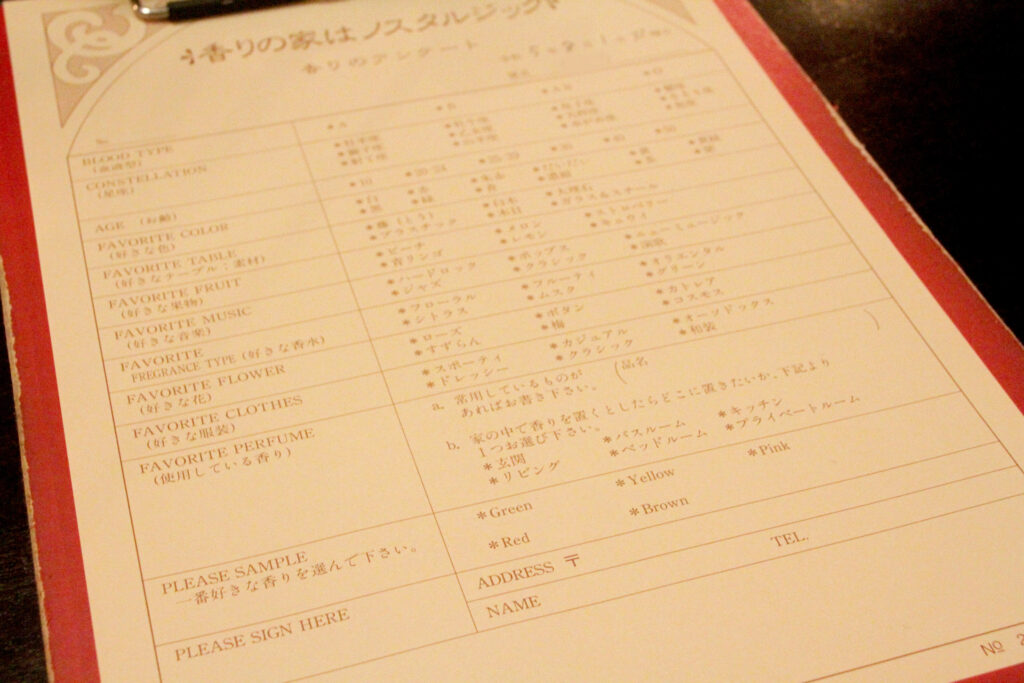 香りの家はノスタルジック
香りのアンケート
BLOOD TYPE
(血液型)
＊A ＊B ＊AB ＊O
CONSTELLATION
(星座)
AGE (お齢)
＊10 ＊20-24 ＊30 ＊40 ＊50
FAVORITE COLOR
(好きな色)
＊白 ＊赤
＊黒 ＊緑 ＊青
FAVORITE TABLE
(好きなテーブル；素材)
＊籐（とう） ＊白木 ＊大理石
＊プラスチック ＊木目 ＊ガラス&スチール
FAVORITE FRUIT
(好きな果物)
＊ピーチ ＊メロン ＊ストロベリー
＊青リンゴ ＊レモン ＊キュウイ
FAVORITE MUSIC
(好きな音楽)
＊ハードロック ＊ポップス ＊ニューミュージック
＊ジャズ ＊クラシック ＊演歌
FAVORITE
FREGRANCE TYPE (好きな香水)
＊フローラル ＊フルーティ ＊オリエンタル
＊シトラス ＊ムスク ＊グリーン
FAVORITE FLOWER
(好きな花)
＊ローズ ＊ボタン ＊カトレア
＊すずらん ＊梅 ＊コスモス
FAVORITE CLOTHES
(好きな服装)
＊スポーティ ＊カジュアル ＊オーソドックス
＊ドレッシー ＊クラシック ＊和装
FAVORITE PERFUME
(使用している香り)
a. 常用しているものが
あればお書き下さい。 (品名 )
b. 家の中で香りを置くとしたらどこに置きたいか、下記より
1つお選び下さい。
＊玄関 ＊バスルーム ＊キッチン
＊リビング ＊ベッドルーム ＊プライベートルーム
PLEASE SAMPLE
一番好きな香りを選んで下さい。
＊Green ＊Yellow ＊Pink
＊Red ＊Brown
PLEASE SIGN HERE
ADDRESS 〒 TEL.
NAME
№ 2